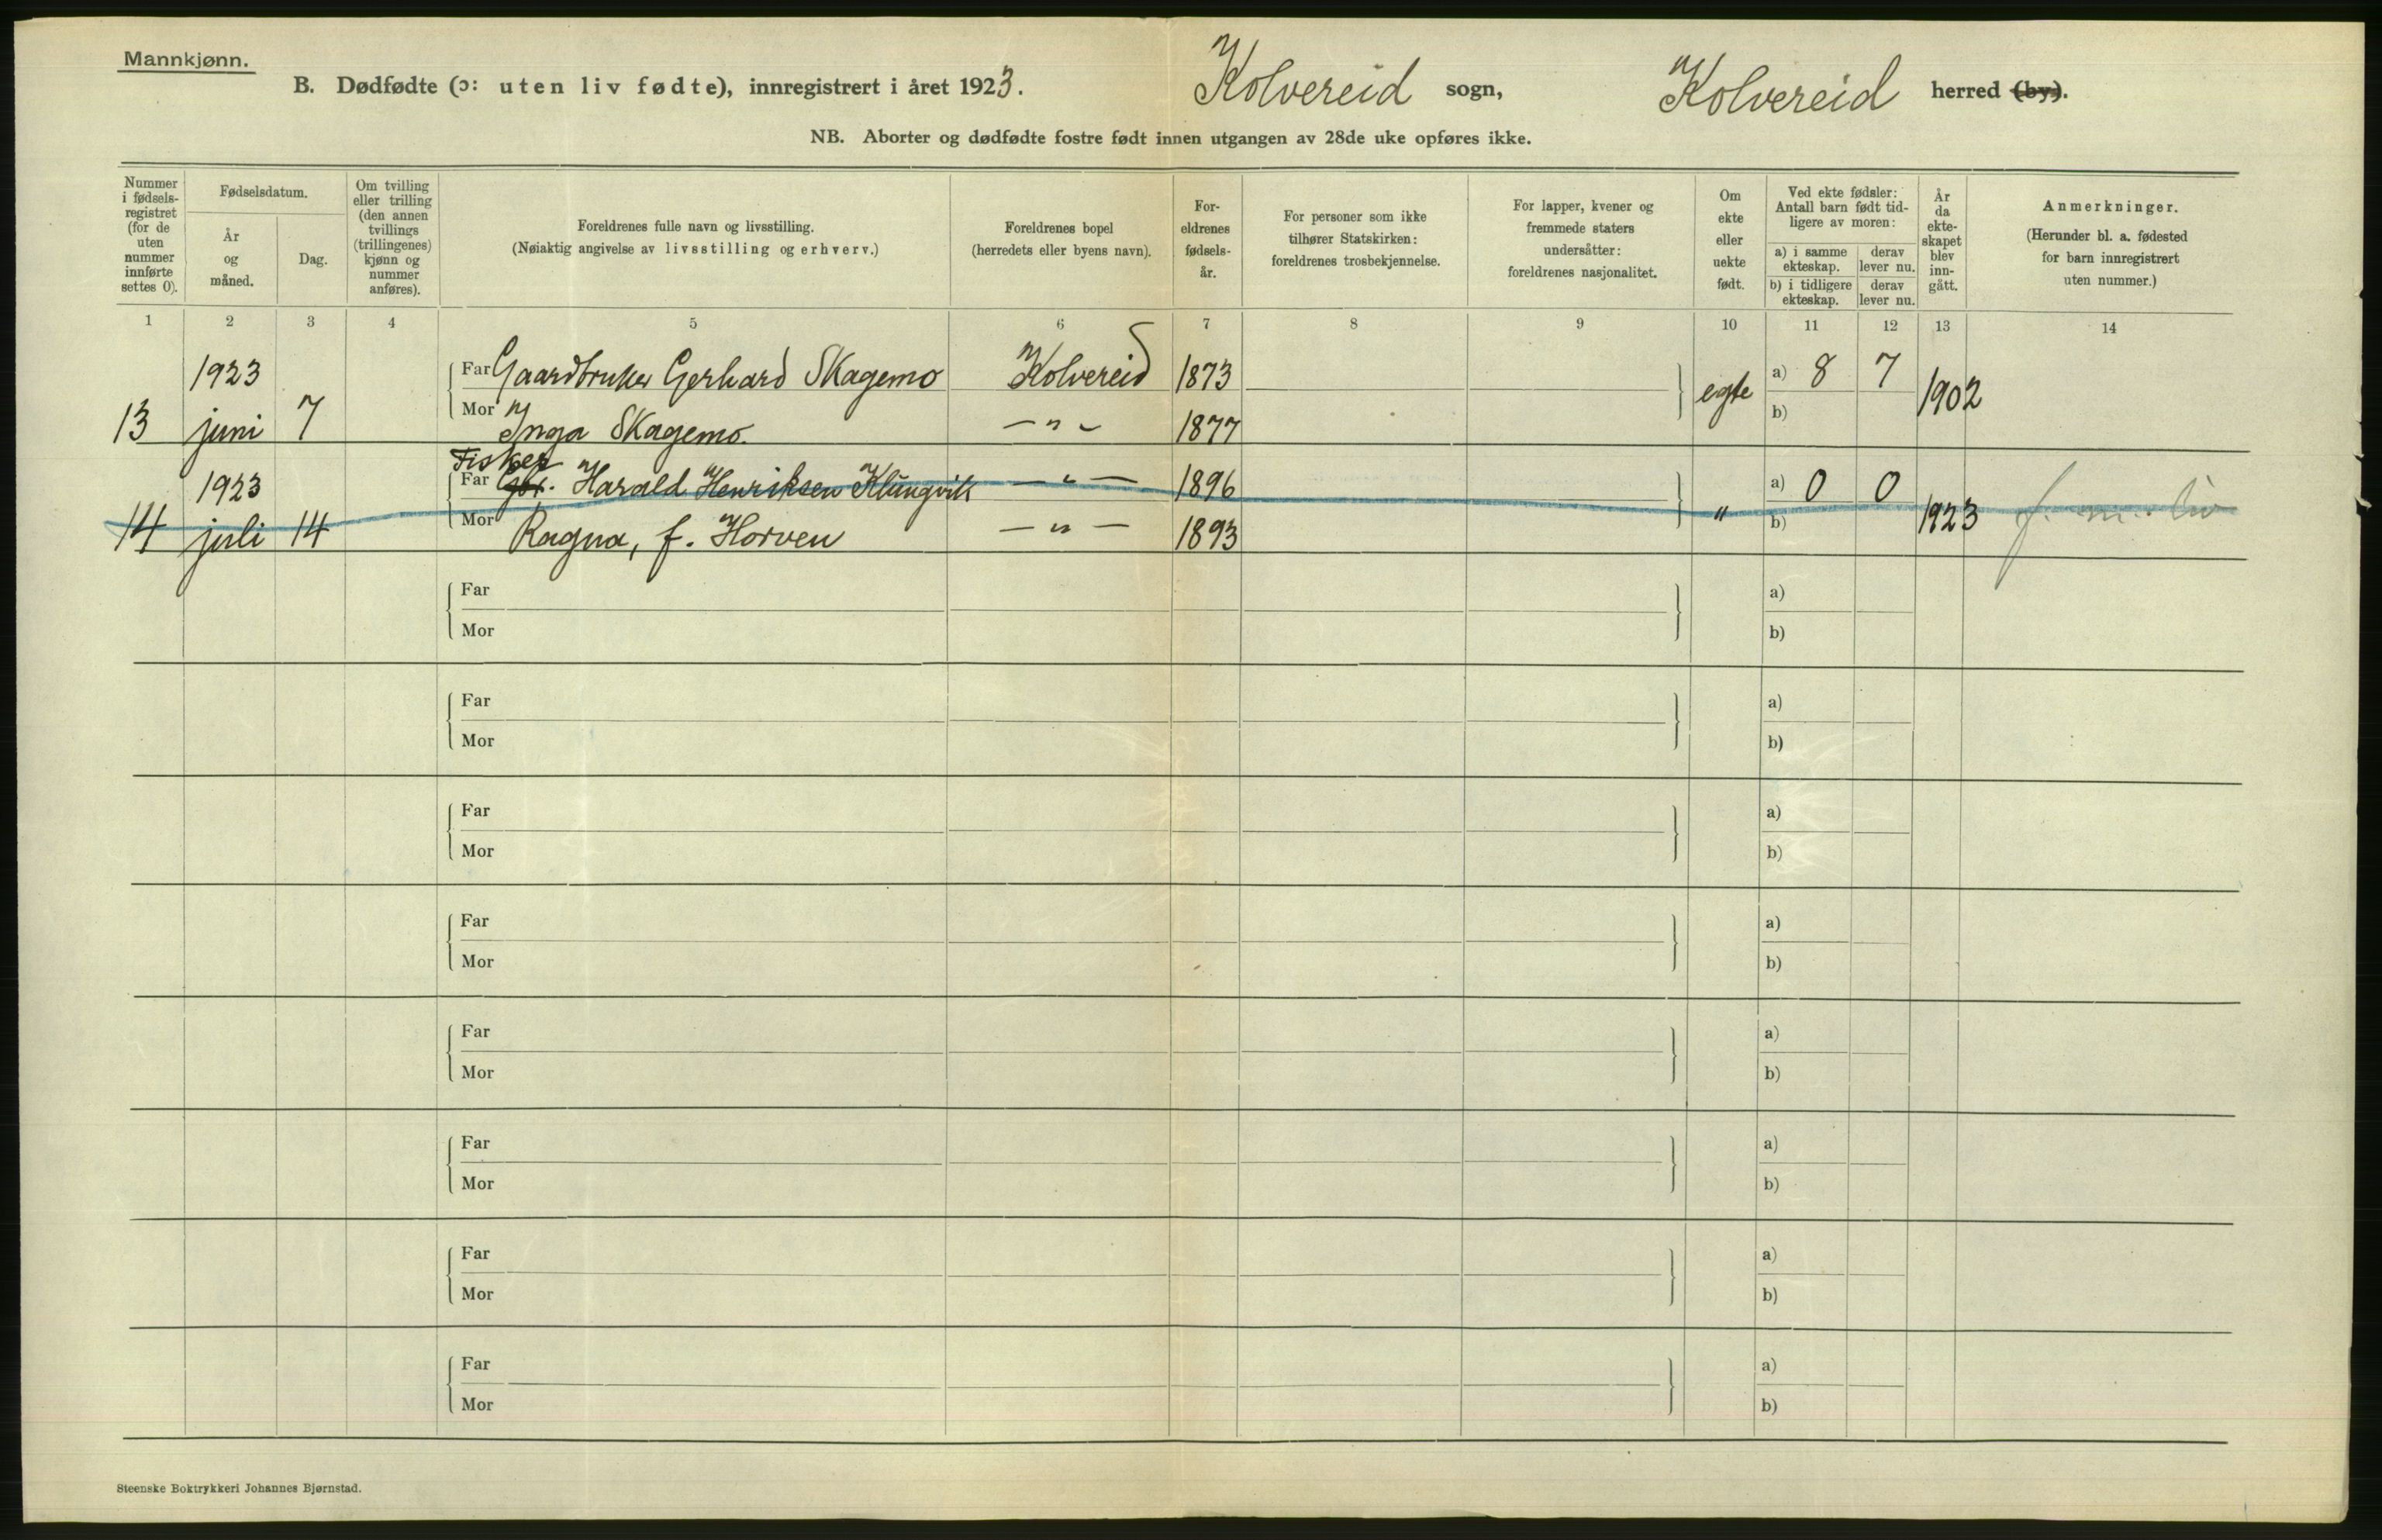 Mannkjønn.
B. Dødfødte (ɔ: uten liv fødte), innregistrert i året 1923. Kolvereid sogn, Kolvereid herred (by).
NB. Aborter og dødfødte fostre født innen utgangen av 28de uke opføres ikke.
Nummer i fødsels-registret (for de uten nummer innførte settes 0).
Fødselsdatum.
År og måned.
Dag.
Om tvilling eller trilling (den annen tvillings (trillingenes) kjønn og nummer anføres).
Foreldrenes fulle navn og livsstilling.
(Nøiaktig angivelse av livsstilling og erhverv.)
Foreldrenes bopel
(herredets eller byens navn).
For-eldrenes fødsels-år.
For personer som ikke tilhører Statskirken: foreldrenes trosbekjennelse.
For lapper, kvener og fremmede staters undersåtter: foreldrenes nasjonalitet.
Om ekte eller uekte født.
Ved ekte fødsler: Antall barn født tid-ligere av moren:
a) i samme ekteskap.
derav lever nu.
b) i tidligere ekteskap.
derav lever nu.
År da ekte-skapet blev inn-gått.
Anmerkninger.
(Herunder bl. a. fødested for barn innregistrert uten nummer.)
1 2 3 4 5 6 7 8 9 10 11 12 13 14
1923 Far Gaardbruker Gerhard Skagemo Kolvereid 1873 egte a) 8 7 1902
13 juni 7 Mor Inga Skagemo. — " — 1877 b)
Fisker
1923 Far Gbr. Harald Henriksen Klungvik — " — 1896 " a) 0 0 1923 f. m. liv
14 juli 14 Mor Ragna, f. Horven — " — 1893 b)
Far a)
Mor b)
Far a)
Mor b)
Far a)
Mor b)
Far a)
Mor b)
Far a)
Mor b)
Far a)
Mor b)
Far a)
Mor b)
Far a)
Mor b)
Steenske Boktrykkeri Johannes Bjørnstad.